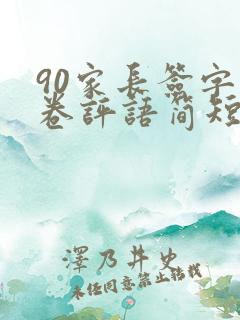 90家长签字
卷評語简短
澤乃井史
未经同意禁止转载